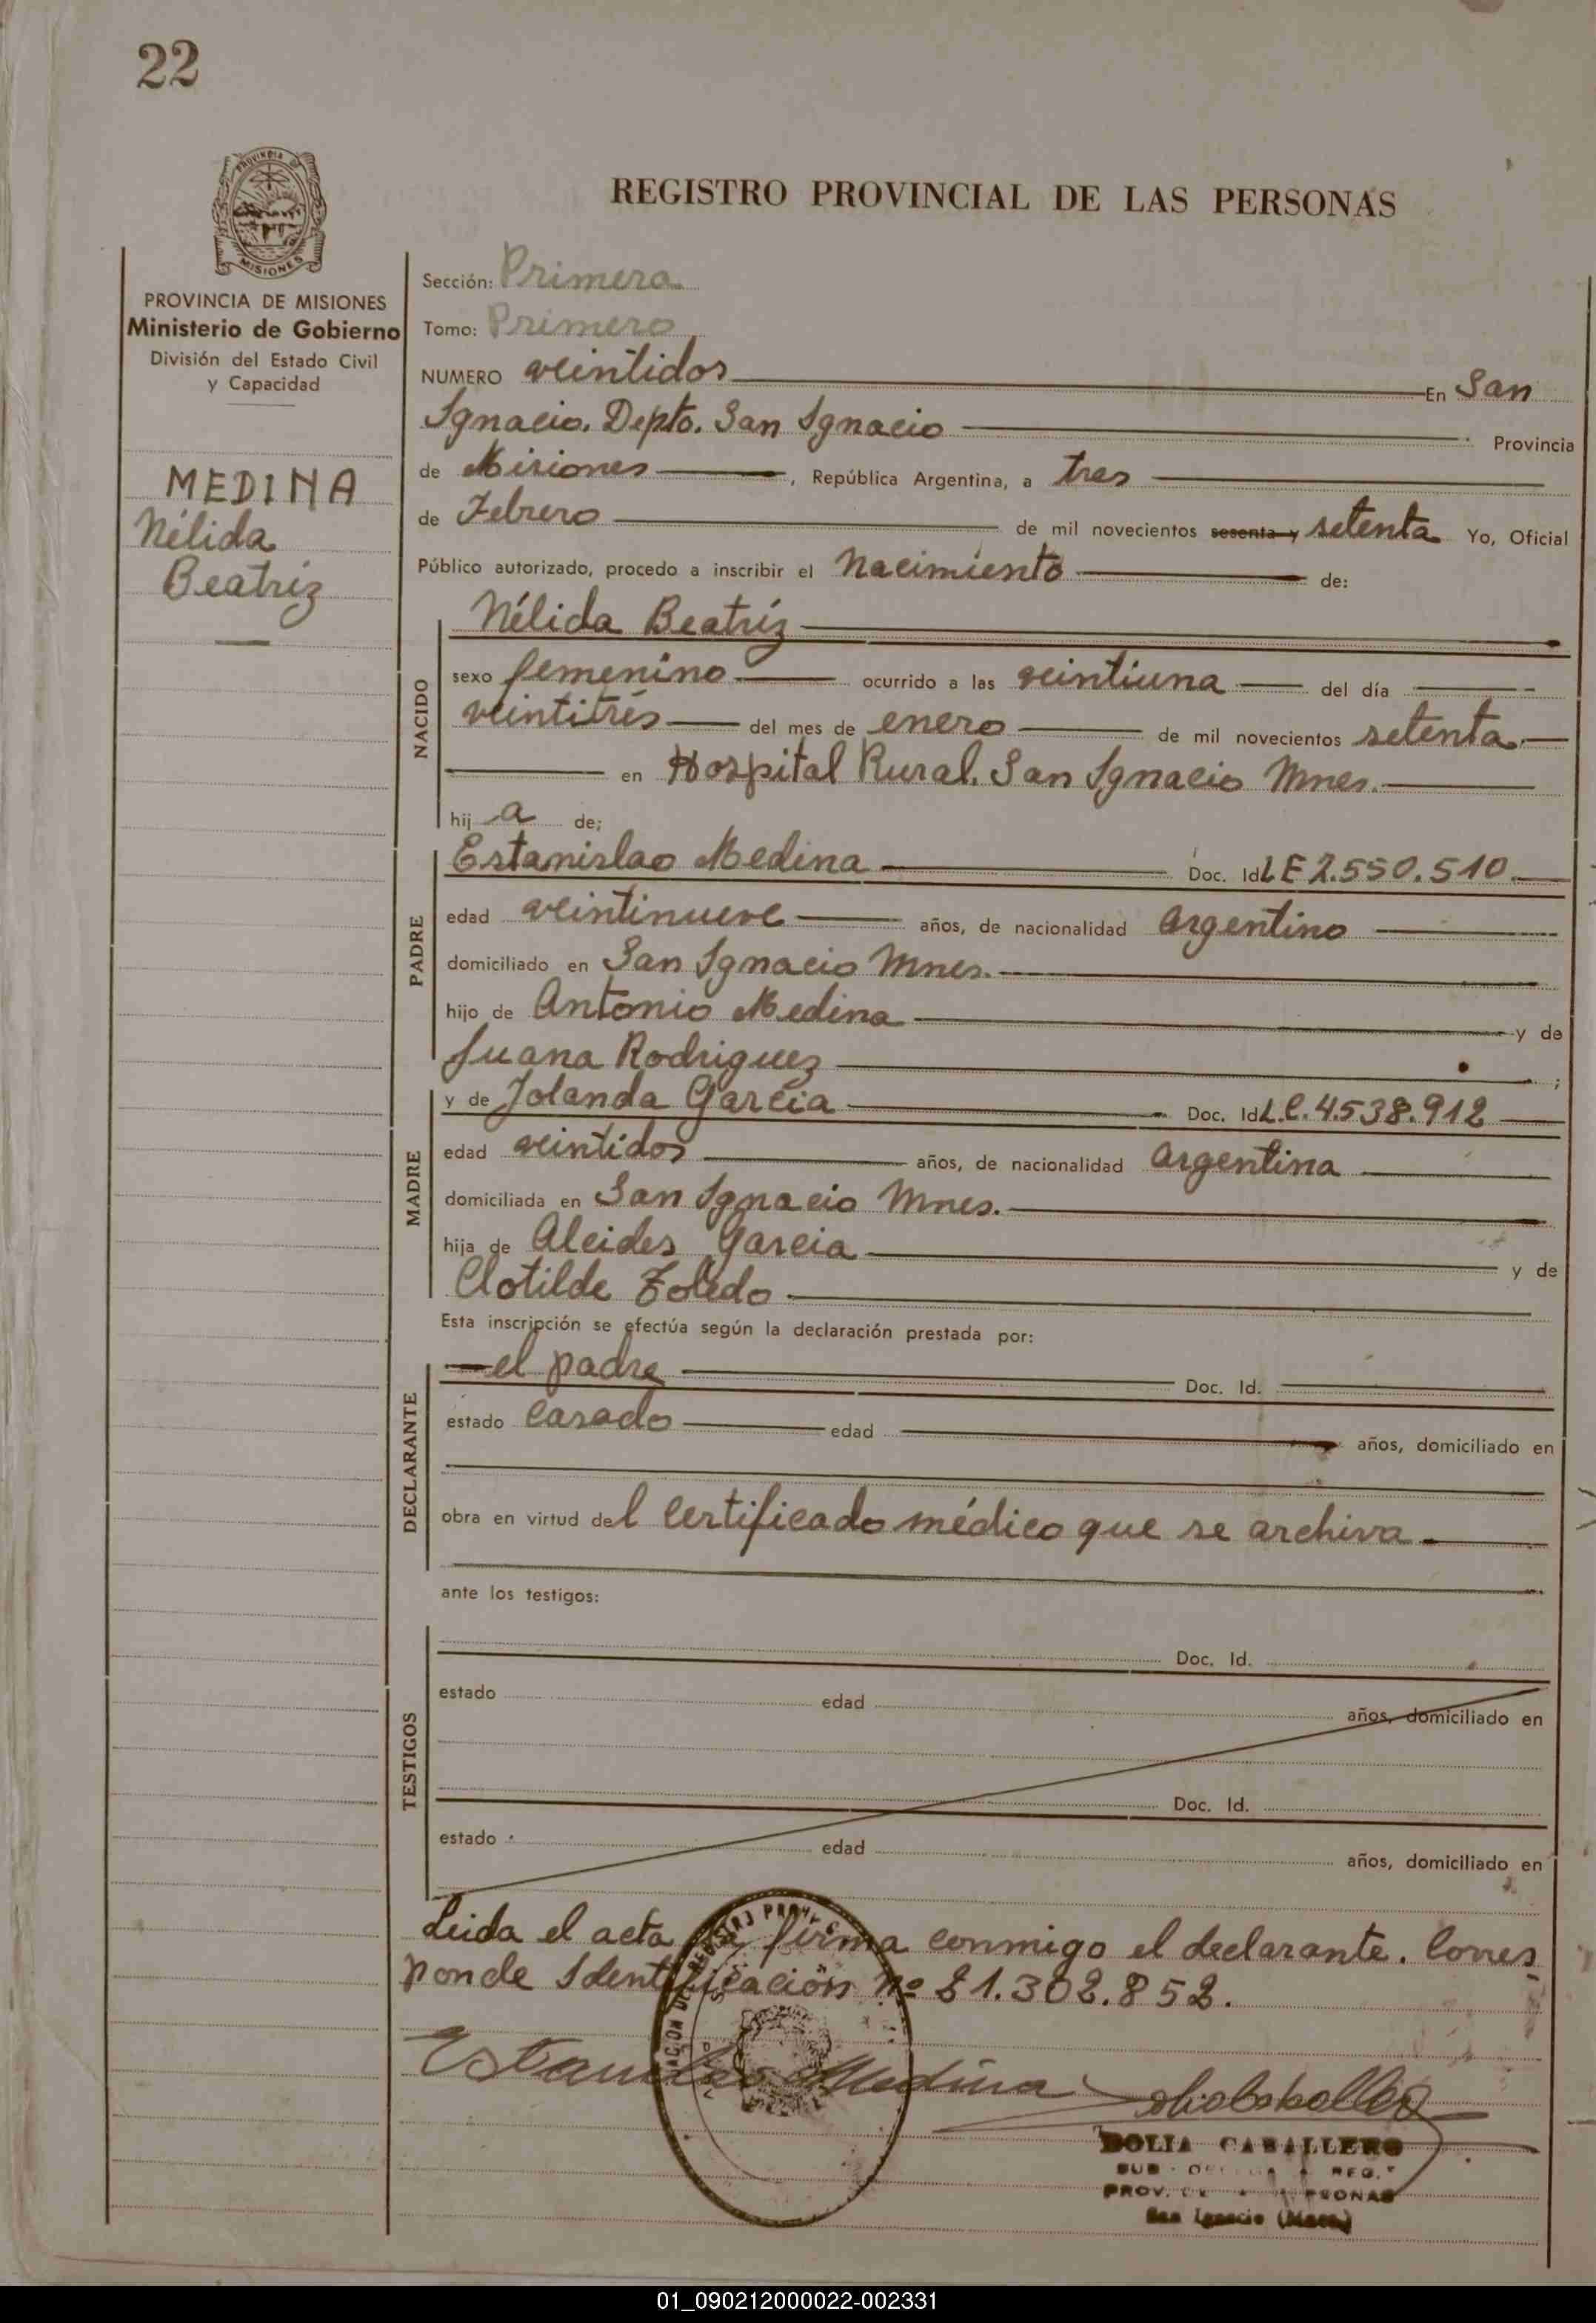 22
PROVINCIA DE
MISIONES
REGISTRO PROVINCIAL DE LAS PERSONAS
PROVINCIA DE MISIONES
Ministerio de Gobierno
División del Estado Civil
y Capacidad
MEDINA
Nélida
Beatriz
Sección: Primera
Tomo: Primero
NUMERO veintidos En San
Ignacio. Depto. San Ignacio . Provincia
de Misiones , República Argentina, a tres
de Febrero de mil novecientos sesenta y setenta Yo, Oficial
Público autorizado, procedo a inscribir el Nacimiento de:
NACIDO
Nélida Beatríz
sexo femenino ocurrido a las veintiuna del día
veintitrés del mes de enero de mil novecientos setenta
en Hospital Rural. San Ignacio Mnes.
hij a de;
PADRE
Estanislao Medina Doc. Id LE 2.550.510
edad veintinueve años, de nacionalidad argentino
domiciliado en San Ignacio Mnes.
hijo de Antonio Medina y de
Juana Rodriguez ;
MADRE
y de Jolanda García Doc. Id L.C. 4.538.912
edad veintidos años, de nacionalidad argentina
domiciliada en San Ignacio Mnes.
hija de Alcides Garcia y de
Clotilde Toledo
Esta inscripción se efectúa según la declaración prestada por:
DECLARANTE
el padre Doc. Id.
estado casado edad años, domiciliado en
obra en virtud del certificado médico que se archiva
ante los testigos:
TESTIGOS
Doc. Id.
estado edad años, domiciliado en
Doc. Id.
estado edad años, domiciliado en
Leida el acta la firma conmigo el declarante. Corres
ponde Identificación nº 21.302.852.
Estanislao Medina
DOLIA CABALLERO
San Ignacio (Mnes.)
01_090212000022-002331